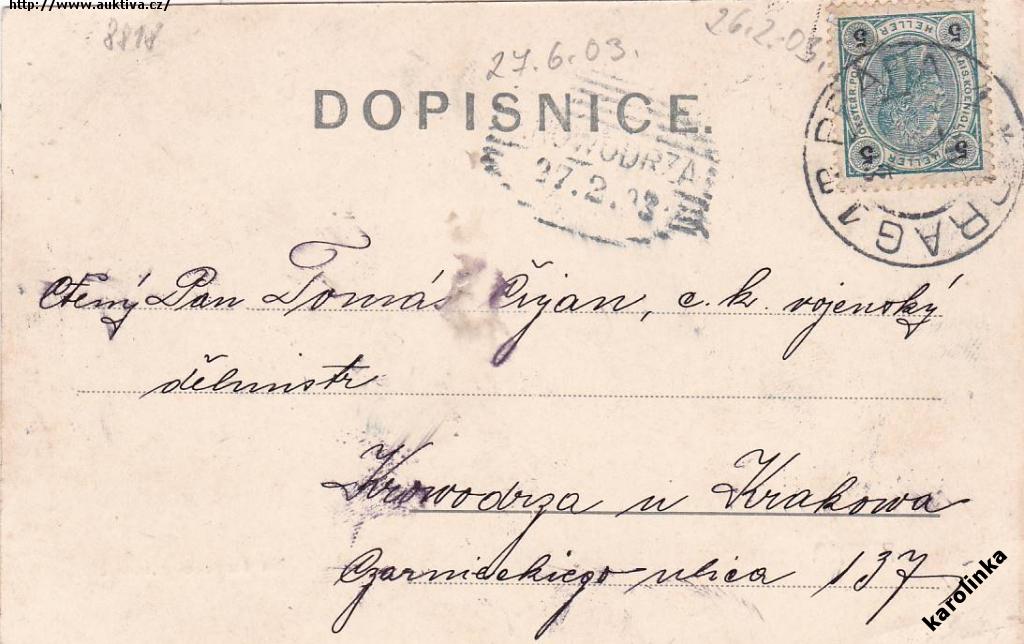 http://www.auktiva.cz/
8818
27.6.03.
26.2.03.
DOPISNICE.
KROWODRZA
27.2.03
5 HELLER 5
5 HELLER 5
PRAG 1
Ctěný Pan Tomáš Čižan, c. k. vojenský
dělmistr
Krowodrza u Krakowa
Czarnieckiego ulica 137
karolinka